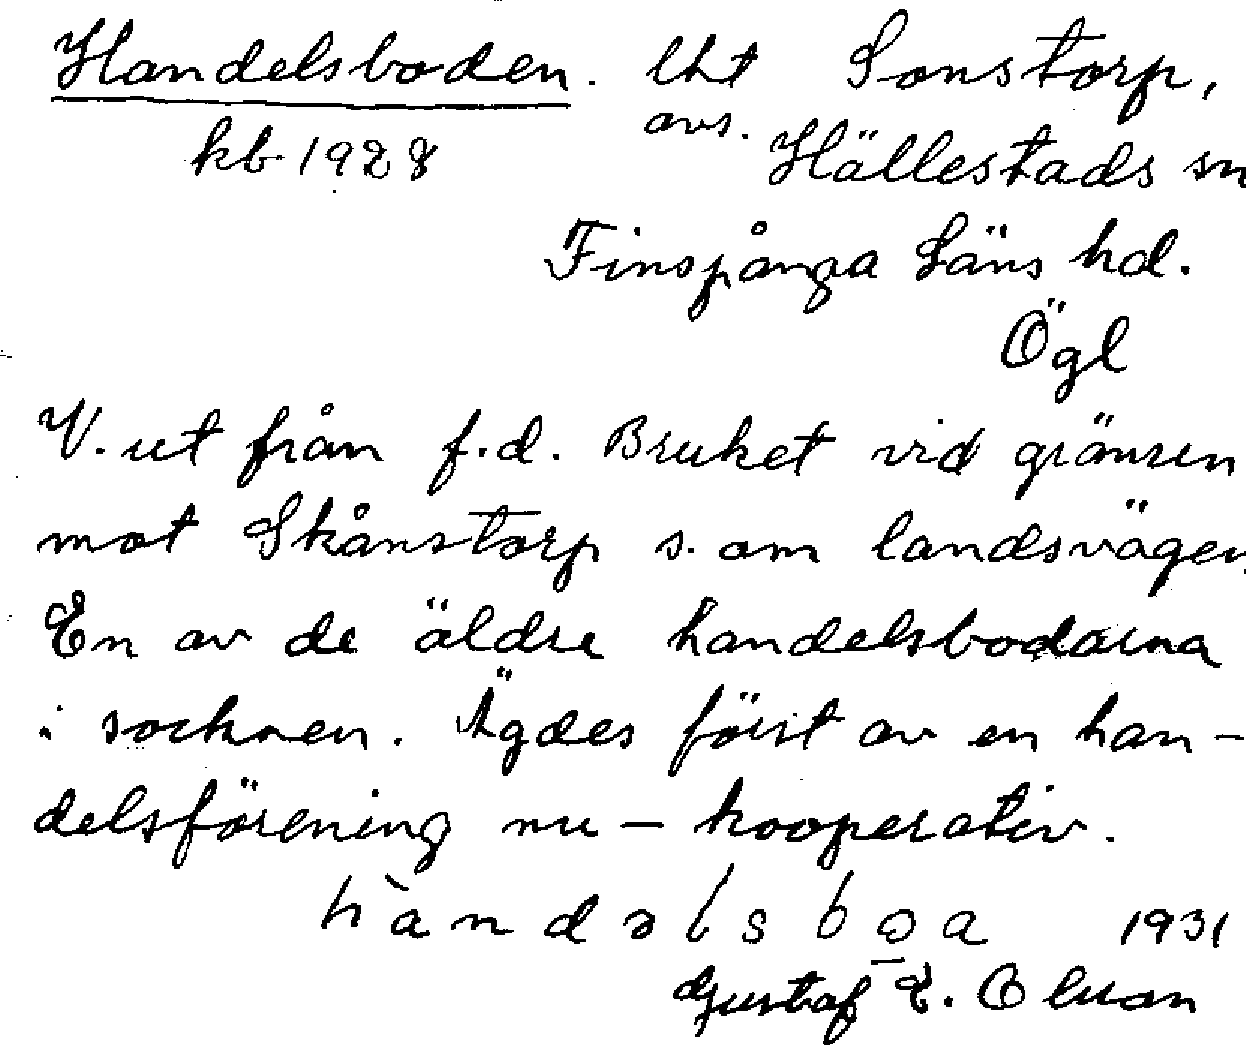 Handelsboden. lht Sonstorp,
kb 1928 avs. Hällestads sn
Finspånga Läns hd.
Ögl
V. ut från f.d. Bruket vid gränsen
mot Skånstorp s. om landsvägen
En av de äldre handelsbodarna
i socknen. Ägdes först av en han-
delsförening nu – kooperativ.
hàndəlsboa 1931
Gustaf E. Olsson